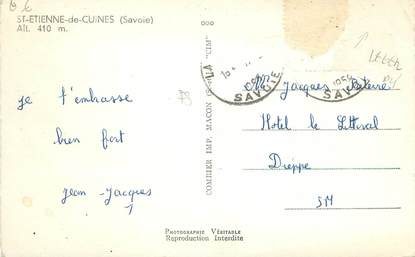 ST-ETIENNE-de-CUINES (Savoie)
Alt. 410 m.
je t'embrasse
bien fort
Jean-Jacques
COMBIER IMP. MACON "CIM"
SAVOIE
Jacques
Hotel le Littoral
Dieppe
SM
PHOTOGRAPHIE VÉRITABLE
Reproduction Interdite